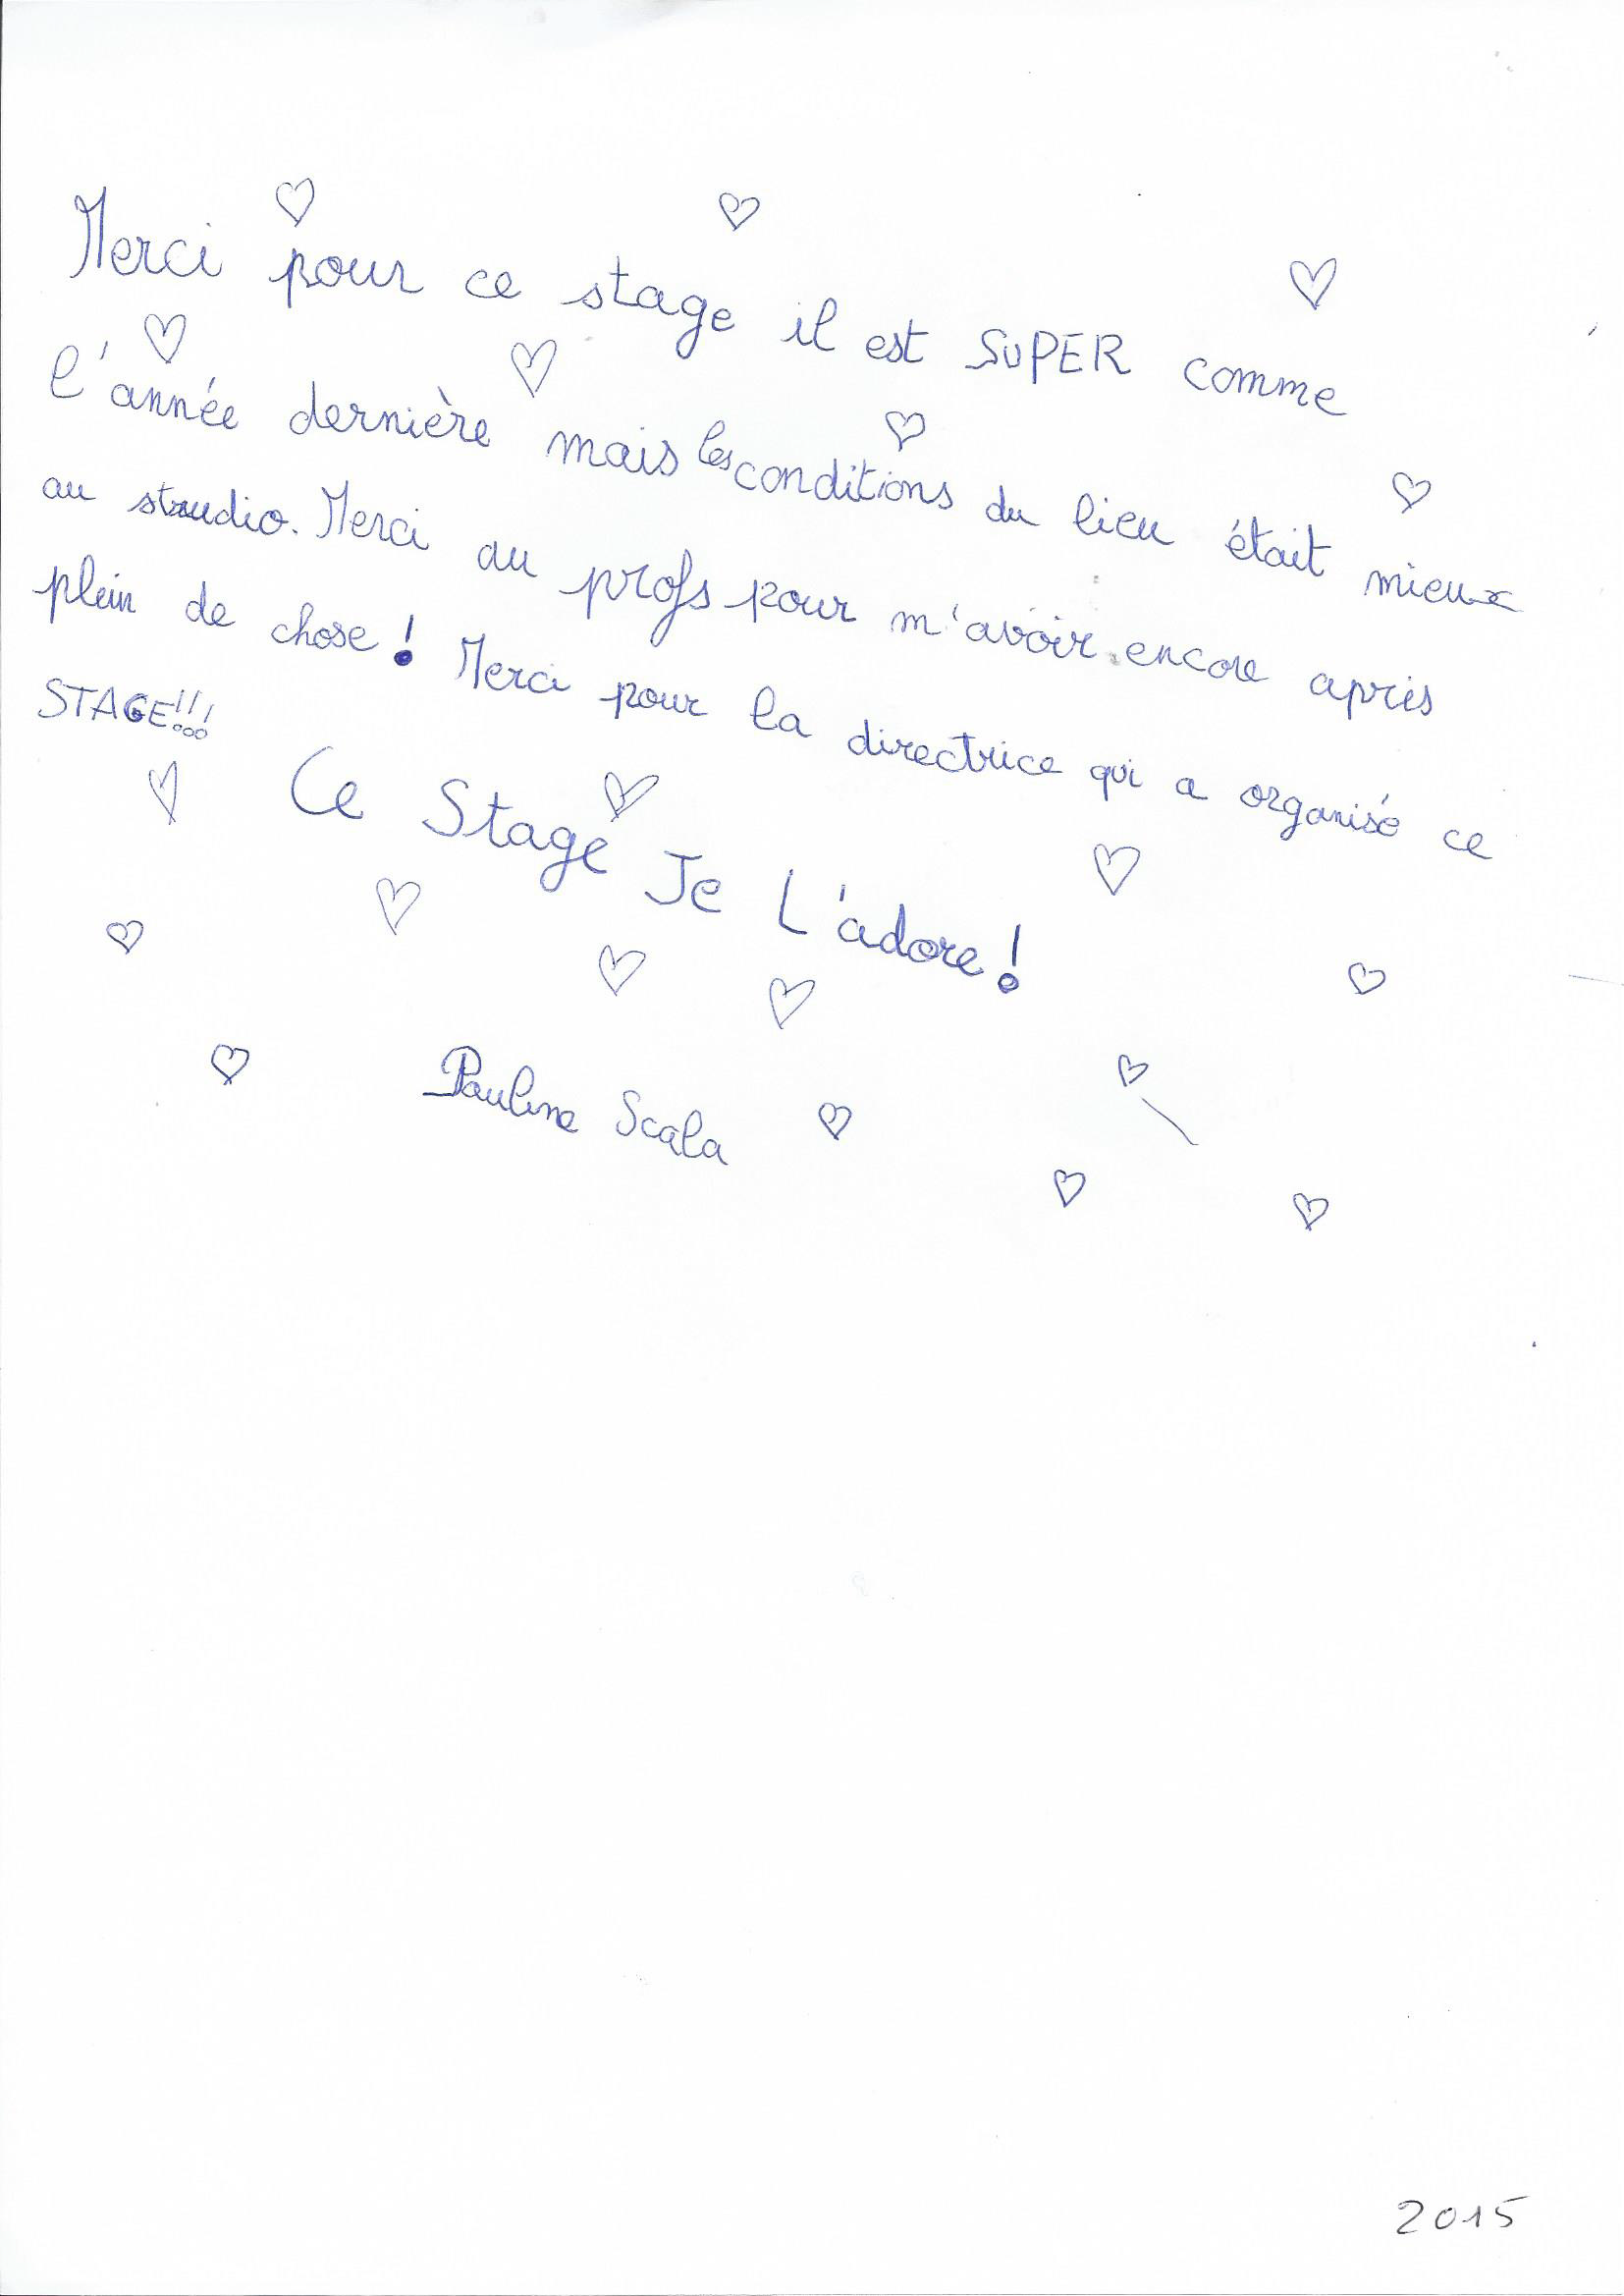 Merci pour ce stage il est SUPER comme
l'année dernière mais les conditions du lieu était mieux
au studio. Merci au profs pour m'avoir encore apris
plein de chose ! Merci pour la directrice qui a organisé ce
STAGE!!!
Ce Stage Je L'adore !
Pauline Scala
2015